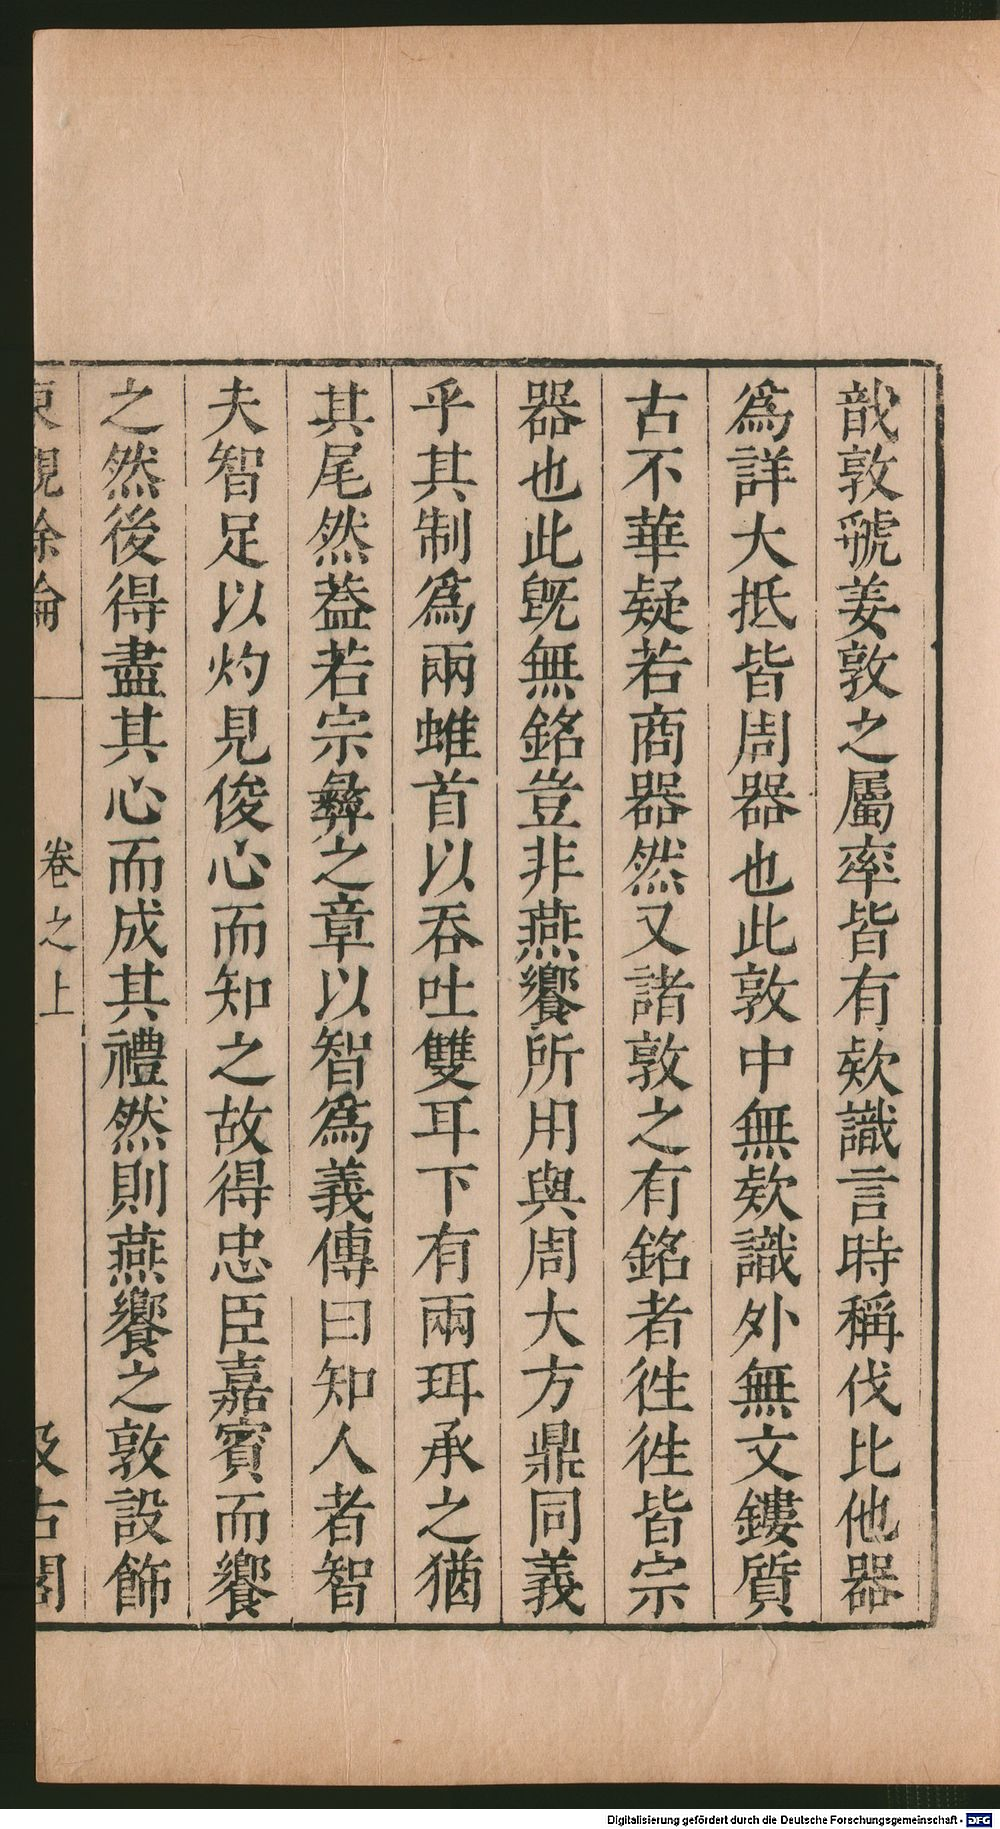 敦虢姜敦之屬率皆有欵識言時稱伐比他器
爲詳大抵皆周器也此敦中無欵識外無文鏤質
古不華疑若商器然又諸敦之有銘者徃徃皆宗
器也此旣無銘豈非燕饗所用與周大方鼎同義
乎其制爲兩蜼首以吞吐雙耳下有兩珥承之猶
其尾然葢若宗彝之章以智爲義傳曰知人者智
夫智足以灼見俊心而知之故得忠臣嘉賓而饗
之然後得盡其心而成其禮然則燕饗之敦設飾
東觀餘論 卷之上 汲古閣
Digitalisierung gefördert durch die Deutsche Forschungsgemeinschaft - DFG